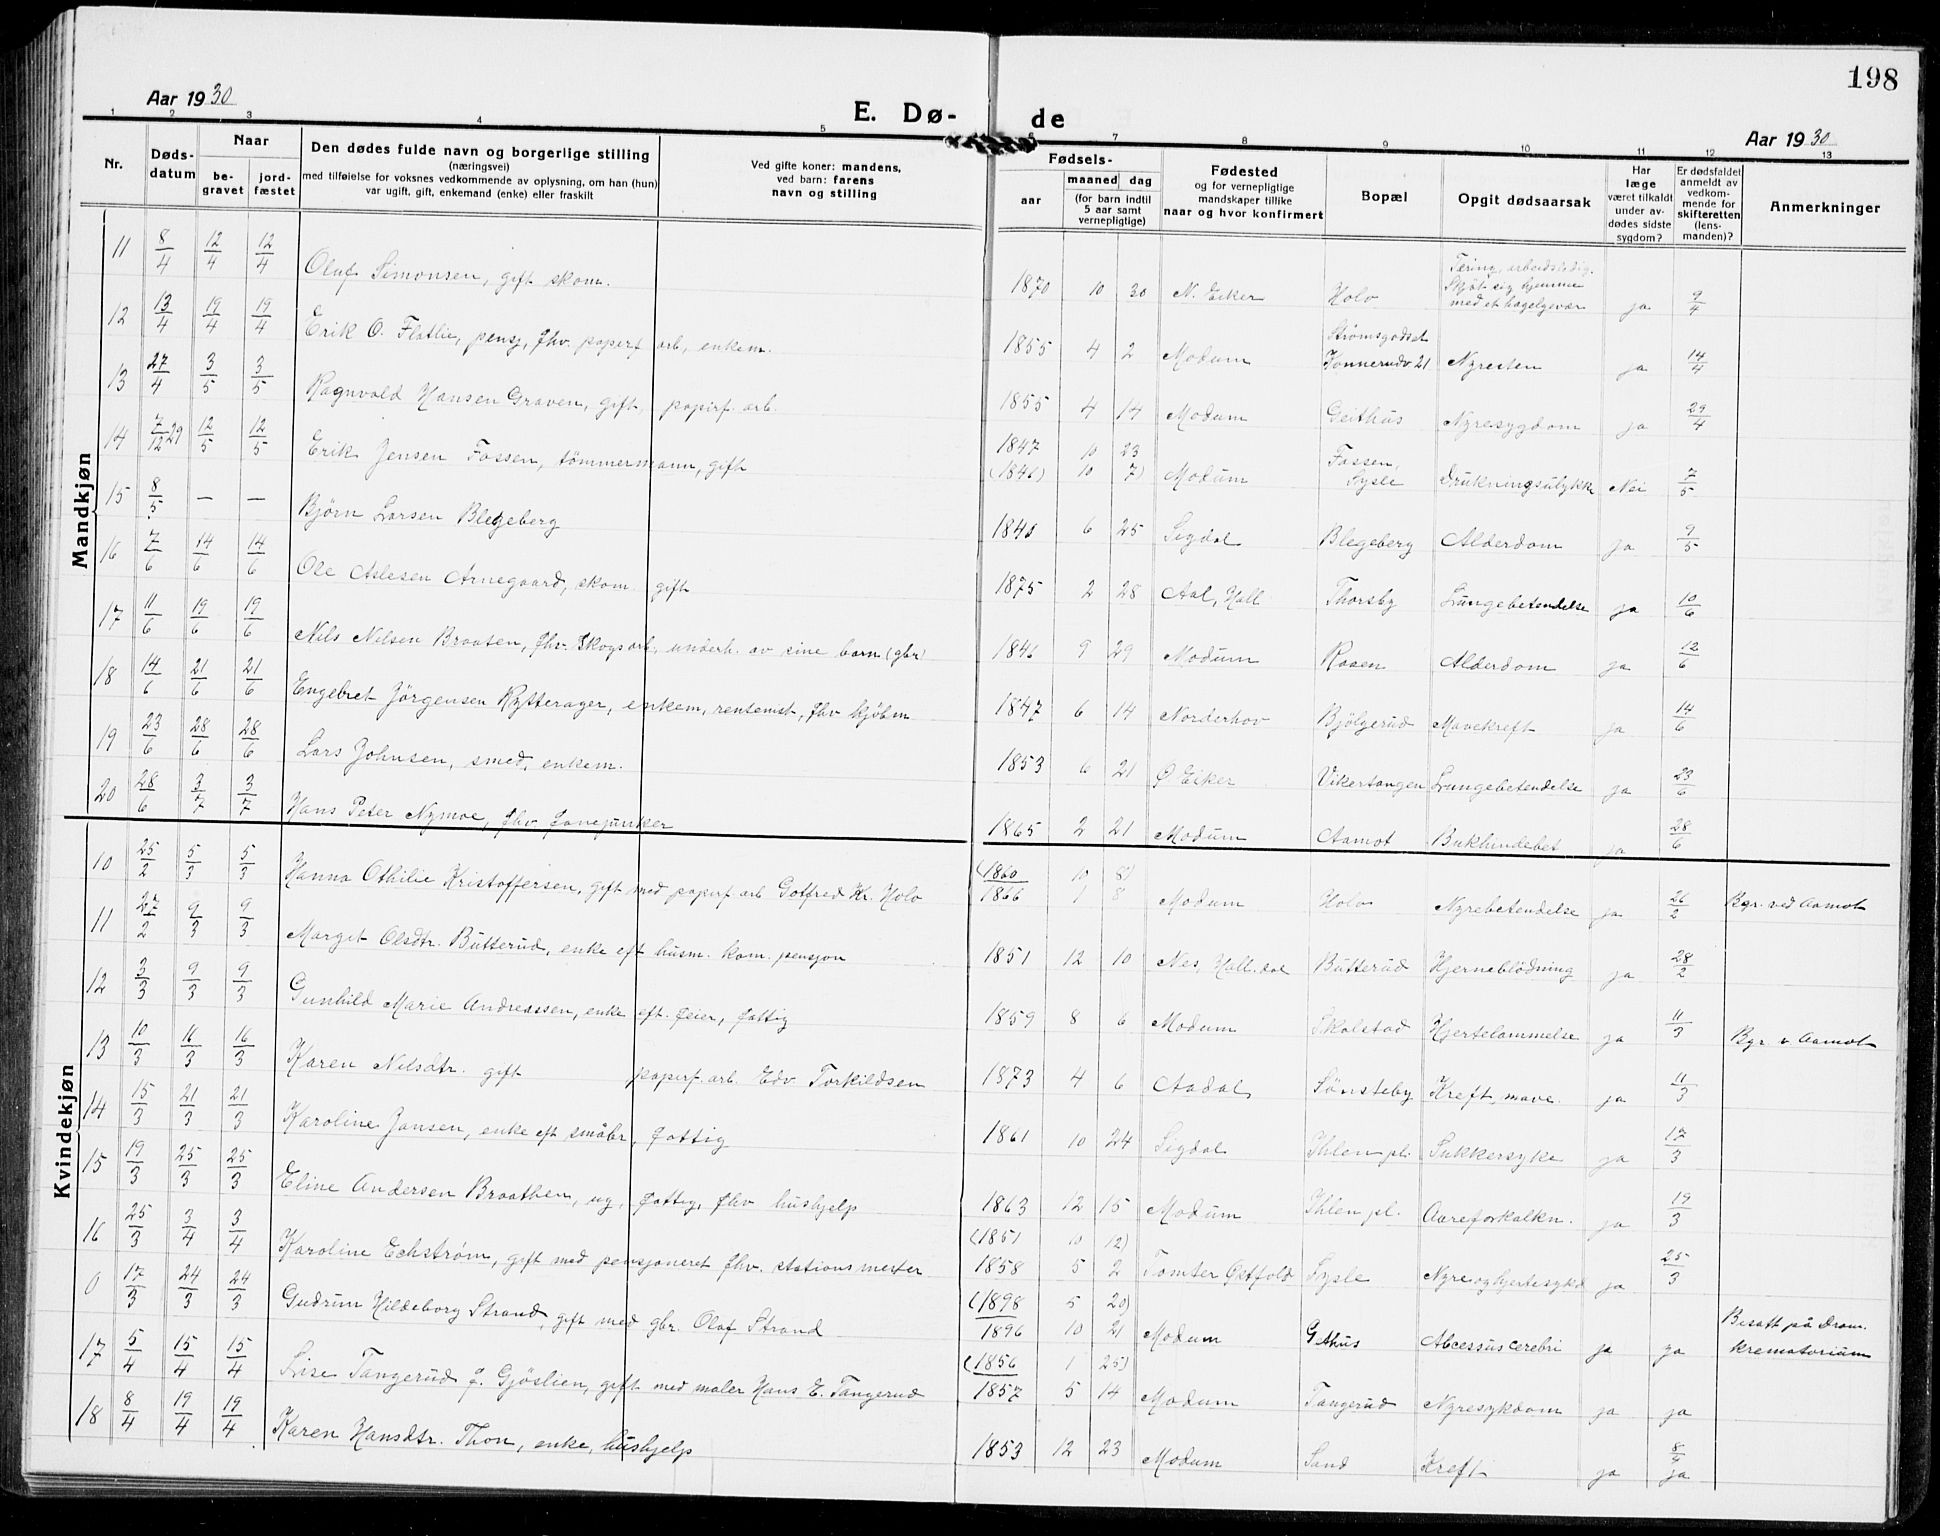 198
Aar 1930
E. Dø-
de
Aar 1930
1 2 3 4 5 6 7 8 9 10 11 12 13
Nr.
Døds-
datum
Naar
be-
gravet
jord-
fæstet
Den dødes fulde navn og borgerlige stilling
(næringsvei)
med tilføielse for voksnes vedkommende av oplysning, om han (hun)
var ugift, gift, enkemand (enke) eller fraskilt
Ved gifte koner: mandens,
ved barn: farens
navn og stilling
Fødsels-
aar
maaned dag
(for barn indtil
5 aar samt
vernepligtige)
Fødested
og for vernepligtige
mandskaper tillike
naar og hvor konfirmert
Bopæl
Opgit dødsaarsak
Har
læge
været tilkaldt
under av-
dødes sidste
sygdom?
Er dødsfaldet
anmeldt av
vedkom-
mende for
skifteretten
(lens-
manden)?
Anmerkninger
Mandkjøn
11 8/4 12/4 12/4 Oluf Simonsen, gift skom. 1870 10 30 N. Eiker Holo Tæring, arbeidsledig.
Skjöt sig hjemme
med et hagelgevær ja 9/4
12 13/4 19/4 19/4 Erik O. Flatlie, pensj, fhv. papirf arb, enkem. 1855 4 2 Modum Strømsgodset
Konnerudv 21 Nyresten ja 14/4
13 27/4 3/5 3/5 Ragnvald Hansen Graven, gift, papirf. arb. 1855 4 14 Modum Geithus Nyresygdom ja 29/4
14 7/12 29 12/5 12/5 Erik Jensen Fossen, tömmermann, gift 1847 10 23
(1846) 10 7) Modum Fossen,
Sysle Drukningsulykke Nei 7/5
15 8/5 — — Björn Larsen Blegeberg 1840 6 25 Sigdal Blegeberg Alderdom ja 9/5
16 7/6 14/6 14/6 Ole Aslesen Arnegaard, skom. gift 1875 2 28 Aal, Hall Thorsby Lungebetendelse ja 10/6
17 11/6 19/6 19/6 Nils Nilsen Braaten, fhv. skogsarb, underh. av sine barn (gbr) 1846 9 29 Modum Rosen Alderdom ja 12/6
18 14/6 21/6 21/6 Engebret Jörgensen Rytterager, enkem, rentenist, fhv kjöbm 1847 6 14 Norderhov Bjölgerud Mavekreft ja 14/6
19 23/6 28/6 28/6 Lars Johnsen, smed, enkem. 1853 6 21 Ø Eiker Vikersangen Lungebetendelse ja 23/6
20 28/6 3/7 3/7 Hans Peter Nymoe, fhv fanejunker 1865 2 21 Modum Aamot Bukhindebet ja 28/6
Kvindekjøn
10 25/2 5/3 5/3 Hanna Othilie Kristoffersen, gift med papirf arb Gotfred Kr. Holo (1860 10 8)
1866 1 8 Modum Holo Nyrebetendelse ja 26/2 Bgr. ved Aamot
11 27/2 9/3 9/3 Marget Olsdtr. Butterud, enke eft husm. kom. pensjon 1851 12 10 Nes, Hall.dal Butterud Hjerneblödning ja 28/2
12 3/3 9/3 9/3 Gunhild Marie Andreassen, enke eft. feier, fattig 1859 8 6 Modum Skalstad Hjertelammelse ja 11/3 Bgr. v Aamot
13 10/3 16/3 16/3 Karen Nilsdtr. gift papirf. arb. Edv Torkildsen 1873 4 6 Aadal Sönsteby Kreft, mave. ja 11/3
14 15/3 21/3 21/3 Karoline Jansen, enke eft småbr, fattig 1861 10 24 Sigdal Ihlen pl. Sukkersyke ja 17/3
15 19/3 25/3 25/3 Eline Andersen Braathen, ug, fattig, fhv hushjelp 1863 12 15 Modum Ihlen pl. Aareforkalkn. ja 19/3
16 25/3 3/4 3/4 Karoline Echström, gift med pensjoneret fhv. stationsmester (1851 10 12)
1858 5 2 Tomter Østfold Sysle Nyre og hjertesykd ja 25/3
0 17/3 24/3 24/3 Gudrun Hildeborg Strand, gift med gbr. Olaf Strand (1898 5 20)
1896 10 21 Modum Gethus Abcessus cerebri ja ja Bisatt på Dram.
krematorium
17 5/4 15/4 15/4 Lise Tangerud f. Gjöslien, gift med maler Hans E. Tangerud (1856 1 25)
1857 5 14 Modum Tangerud Nyresykdom ja ja
18 8/4 19/4 19/4 Karen Hansdtr. Thon, enke, hushjelp 1853 12 23 Modum Sand Kreft ja 8/4
ja